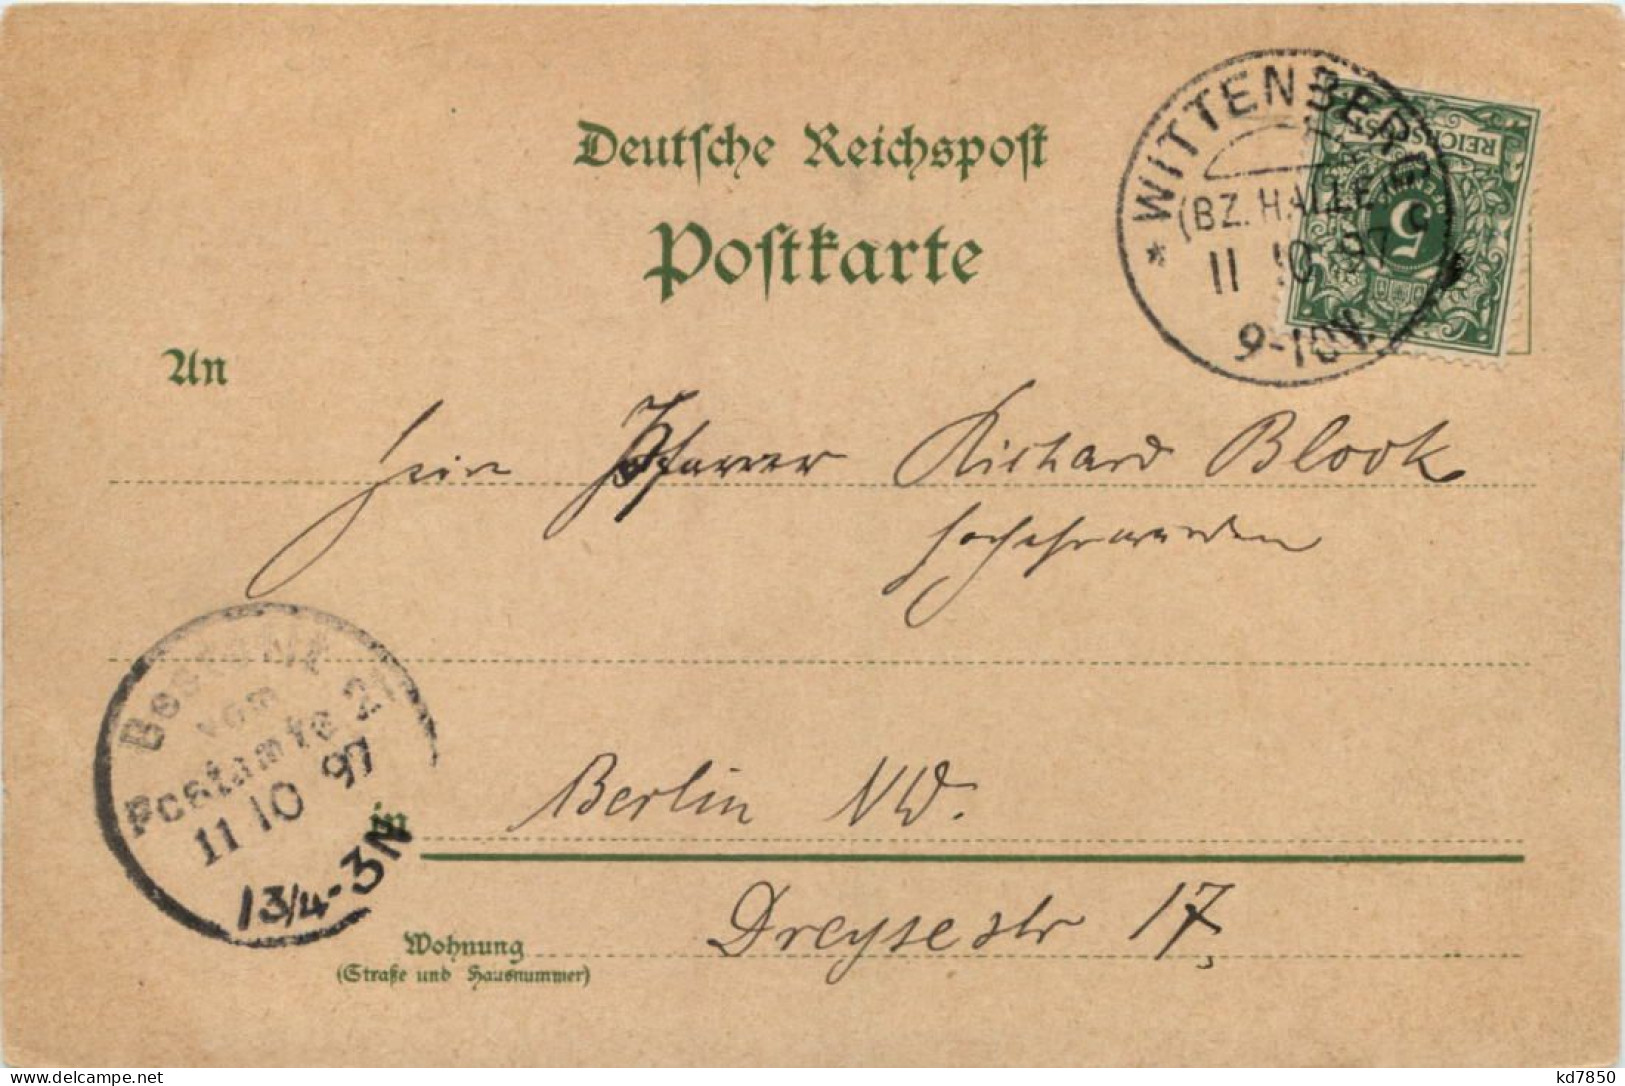 Deutsche Reichspost
Postkarte
WITTENBERG
(BZ. HALLE)
11 10 97
9-10V.
REICHSPOST
5
An
Herrn Pfarrer Richard Block
Hochehrwürden
Bestellt
vom
Postamte 21
11 10 97
1 3/4-3N
in Berlin NW.
Dreysestr 17,
Wohnung
(Straße und Hausnummer)
delcampe.net
kd7850